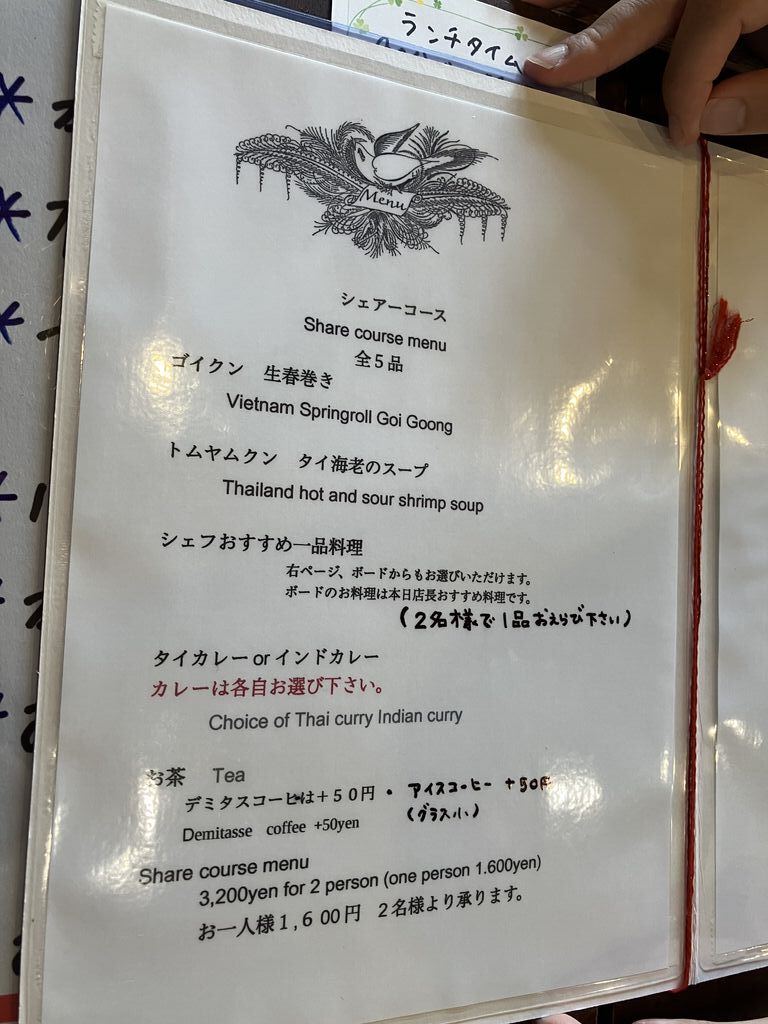 ランチタイム
Menu
シェアーコース
Share course menu
全5品
ゴイクン 生春巻き
Vietnam Springroll Goi Goong
トムヤムクン タイ海老のスープ
Thailand hot and sour shrimp soup
シェフおすすめ一品料理
右ページ、ボードからもお選びいただけます。
ボードのお料理は本日店長おすすめ料理です。
(2名様で1品おえらび下さい)
タイカレー or インドカレー
カレーは各自お選び下さい。
Choice of Thai curry Indian curry
お茶 Tea
デミタスコーヒは+50円 • アイスコーヒー +50円
(グラス小)
Demitasse coffee +50yen
Share course menu
3,200yen for 2 person (one person 1.600yen)
お一人様1,600円 2名様より承ります。